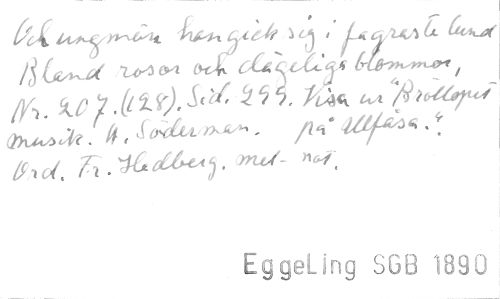 Och ungmön hon gick sig i fagraste lund
Bland rosor och dägeliga blommor,
Nr. 207. (128). Sid. 299. Visa ur "Bröllopet
musik. A. Söderman. på Ulfåsa.".
Ord. Fr. Hedberg. mel- not.
EggeLing SGB 1890